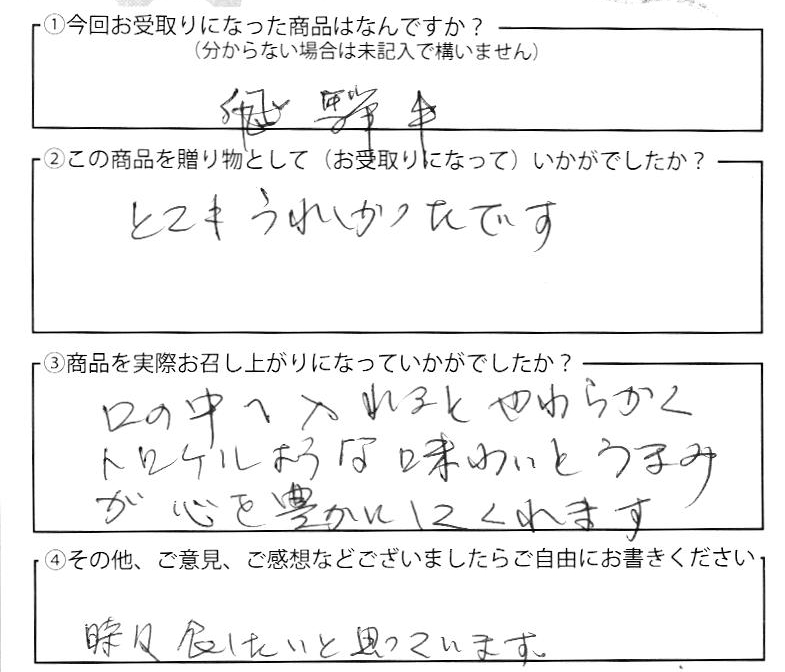 ①今回お受取りになった商品はなんですか？
（分からない場合は未記入で構いません）
飛騨牛
②この商品を贈り物として（お受取りになって）いかがでしたか？
とてもうれしかったです
③商品を実際お召し上がりになっていかがでしたか？
口の中へ入れるとやわらかく
トロケルような味わいとうまみ
が心を豊かにしてくれます
④その他、ご意見、ご感想などございましたらご自由にお書きください
時々食したいと思っています。